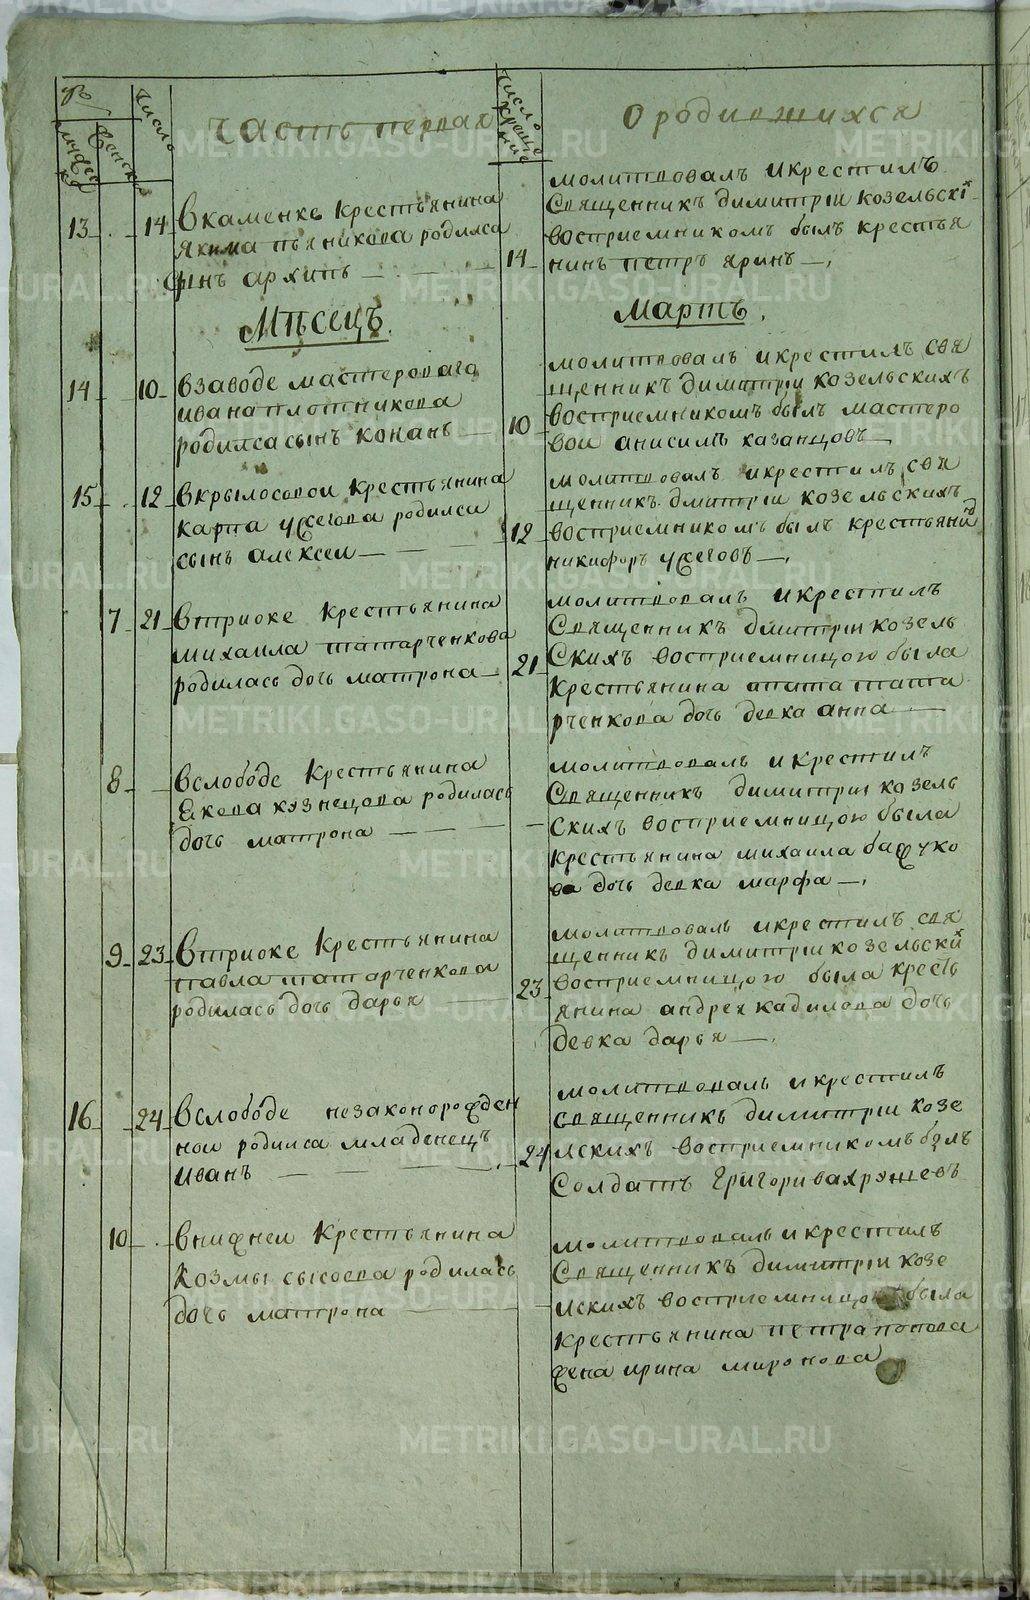 Часть первая
О родившихся
Число
Число крещения
Мужеска
Женска
13 14 Вкаменке крестьянина
Якима пьянкова родился
сынъ архипъ
14 молитвовалъ икрестилъ
Священникъ димитрїи козельскїх
восприемникомъ былъ крестья
нинъ петръ яринъ
Мѣсецъ.
Мартъ.
14 10 Взаводе мастероваго
ивана плотникова
родился сынъ конанъ
10 молитвовалъ икрестилъ свя
щенникъ димитрїи козельскихъ
восприемникомъ былъ мастеро
вои анисимъ казанцовъ
15 12 Вкрылосовои крестьянина
карпа ужегова родился
сынъ алексеи
12 молитвовалъ икрестилъ свя
щенникъ дмитрїи козельскихъ
восприемникомъ былъ крестьянинъ
никифоръ ужеговъ
7 21 Втриоке крестьянина
михаила татарченкова
родилась дочь матрона
21 молитвовалъ икрестилъ
Священникъ дмитрїи козель
скихъ восприемницою была
крестьянина ипата тата
рченкова дочь девка анна
8 Вслободе крестьянина
Якова кузнецова родилась
дочь матрона
молитвовалъ икрестилъ
Священникъ димитрїи козель
скихъ восприемницою была
крестьянина михаила бажуко
ва дочь девка марфа
9 23 Втриоке крестьянина
павла татарченкова
родилась дочь дарья
23 молитвовалъ икрестилъ свя
щенникъ димитрїи козельскихъ
восприемницою была кресть
янина андрея кадилова дочь
девка дарья
16 24 Вслободе незаконорожден
нои родился младенецъ
Иванъ
24 молитвовалъ икрестилъ
священникъ димитрїи козе
льскихъ восприемникомъ былъ
Солдатъ Григори вахрушевъ
10 Внижнеи крестьянина
Козмы сысоева родилась
дочь матрона
молитвовалъ икрестилъ
Священникъ димитрїи козе
льскихъ восприемницою была
крестьянина петра попова
жена ирина миронова
METRIKI.GASO-URAL.RU